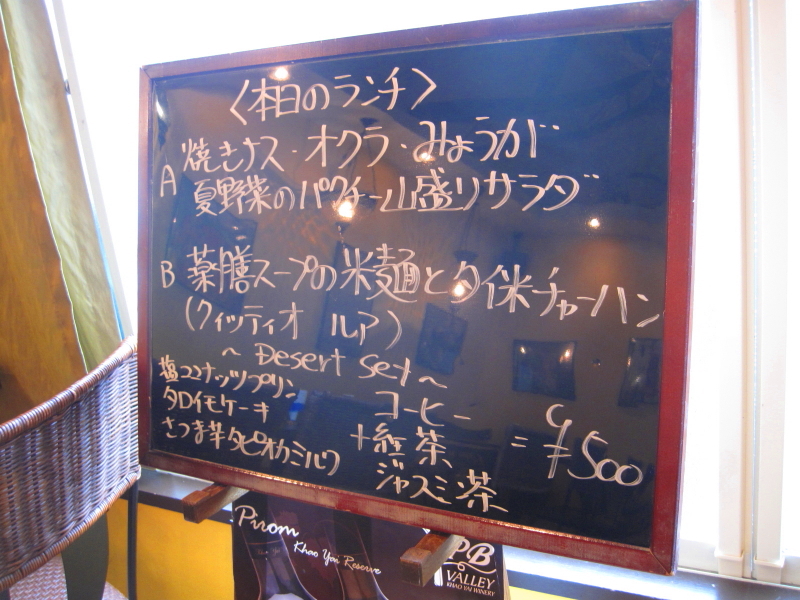 〈本日のランチ〉
A 焼きナス・オクラ・みょうが
夏野菜のパクチー山盛りサラダ
B 薬膳スープの米麺とタイ米チャーハン
(クィッティオ ルア)
~ Desert Set ~
塩ココナッツプリン
タロイモケーキ
さつま芋タピオカミルク
+
コーヒー
紅茶
ジャスミン茶
= ¥500
Pirom
Khao Yai Reserve
PB
VALLEY
KHAO YAI WINERY